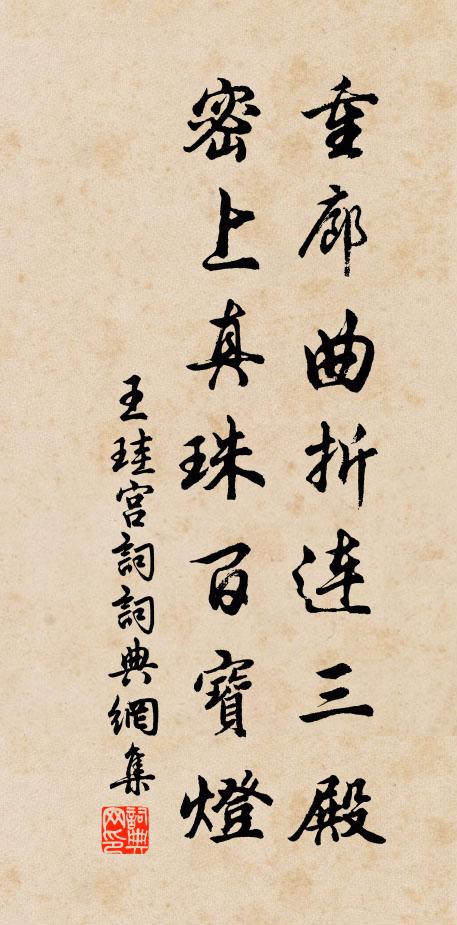 重廊曲折連三殿
密上真珠百寶燈
王珪宮詞詞典網集
詞典網印